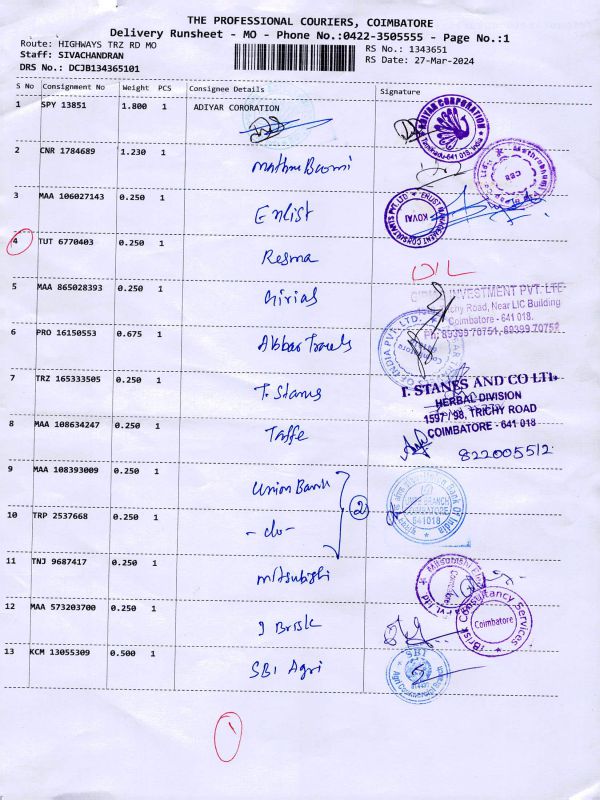 THE PROFESSIONAL COURIERS, COIMBATORE
Delivery Runsheet - MO - Phone No.:0422-3505555 - Page No.:1
Route: HIGHWAYS TRZ RD MO
RS No.: 1343651
Staff: SIVACHANDRAN
RS Date: 27-Mar-2024
DRS No.: DCJB134365101
S No Consignment No Weight PCS Consignee Details Signature
1 SPY 13851 1.800 1 ADIYAR CORORATION
ADIYAR CORPORATION
Tamilnadu-641 018, India
2 CNR 1784689 1.230 1
CBE
3 MAA 106027143 0.250 1 Enlist
ENLIST MANAGEMENT CONSULTANTS PVT. LTD
KOVAI
4 TUT 6770403 0.250 1 Resma
D/L
5 MAA 865028393 0.250 1 Girias
INVESTMENT PVT. LTD
Trichy Road, Near LIC Building
Coimbatore - 641 018.
Ph: 89399 70751, 89399 70752
6 PRO 16150553 0.675 1 Akbar Travels
OF INDIA PVT. LTD.
7 TRZ 165333505 0.250 1 T. Stanes
T. STANES AND CO LTD.
HERBAL DIVISION
1597 / 98, TRICHY ROAD
COIMBATORE - 641 018
8 MAA 108634247 0.250 1 Taffe
822005512
9 MAA 108393009 0.250 1 Union Bank
2
Union Bank Of India
BRANCH
COIMBATORE
641018
10 TRP 2537668 0.250 1 -do-
11 TNJ 9687417 0.250 1 Mitsubishi
Mitsubishi Ele
12 MAA 573203700 0.250 1 I Brisk
iBrisk Consultancy Services
Coimbatore
13 KCM 13055309 0.500 1 SBI Agri
SBI
1